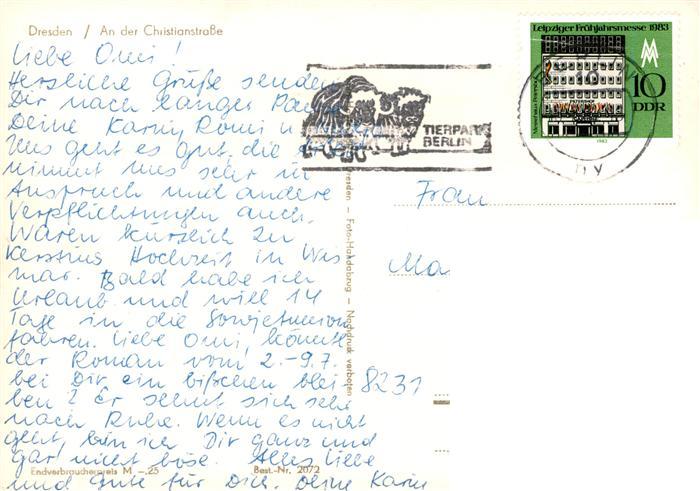 Dresden / An der Christianstraße
Liebe Omi!
Herzliche Grüße senden
Dir nach langer Pause
Deine Karin, Romi u.
Uns geht es gut, die
nimmt uns sehr in
Anspruch und andere
Verpflichtungen auch.
Waren kürzlich zu
Kerstins Hochzeit in Wis
mar. Bald habe ich
Urlaub und will 14
Tage in die Sowjetunion
fahren. Liebe Omi, könnte
der Roman vom 2.-9.7.
bei Dir ein bißchen blei
ben? Er sehnt sich sehr
nach Ruhe. Wenn es nicht
geht, bin ich Dir ganz und
gar nicht böse. Alles Liebe
und Gute für Dich. Deine Karin
Endverbraucherpreis M -,25 Best.-Nr. 2072
resden - Foto-Handabzug - Nachdruck verboten
TIERPARK
BERLIN
Leipziger Frühjahrsmesse 1983
MM
10
DDR
1983
10
ny
Frau
Ma
8231